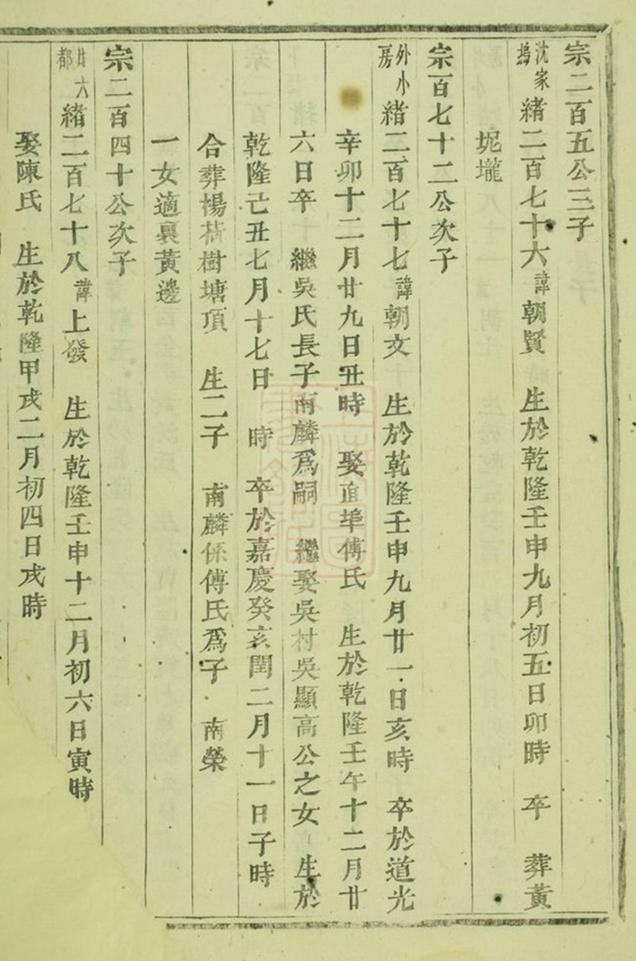 宗二百五公三子
沈家塢 緒二百七十六諱朝賢 生於乾隆壬申九月初五日卯時 卒 葬黃
坭壠
宗百七十二公次子
外小房 緒二百七十七諱朝文 生於乾隆壬申九月廿一日亥時 卒於道光
辛卯十二月廿九日丑時 娶直埠傅氏 生於乾隆壬午十二月廿
六日卒 繼吳氏長子南麟爲嗣 繼娶吳村吳顯高公之女 生於
乾隆己丑七月十七日 時 卒於嘉慶癸亥閏二月十一日子時
合葬楊樹塘頂 生二子 南麟係傅氏爲子 南榮
一女適裏黃邊
宗二百四十公次子
廿六都 緒二百七十八諱上發 生於乾隆壬申十二月初六日寅時
娶陳氏 生於乾隆甲戌二月初四日戌時